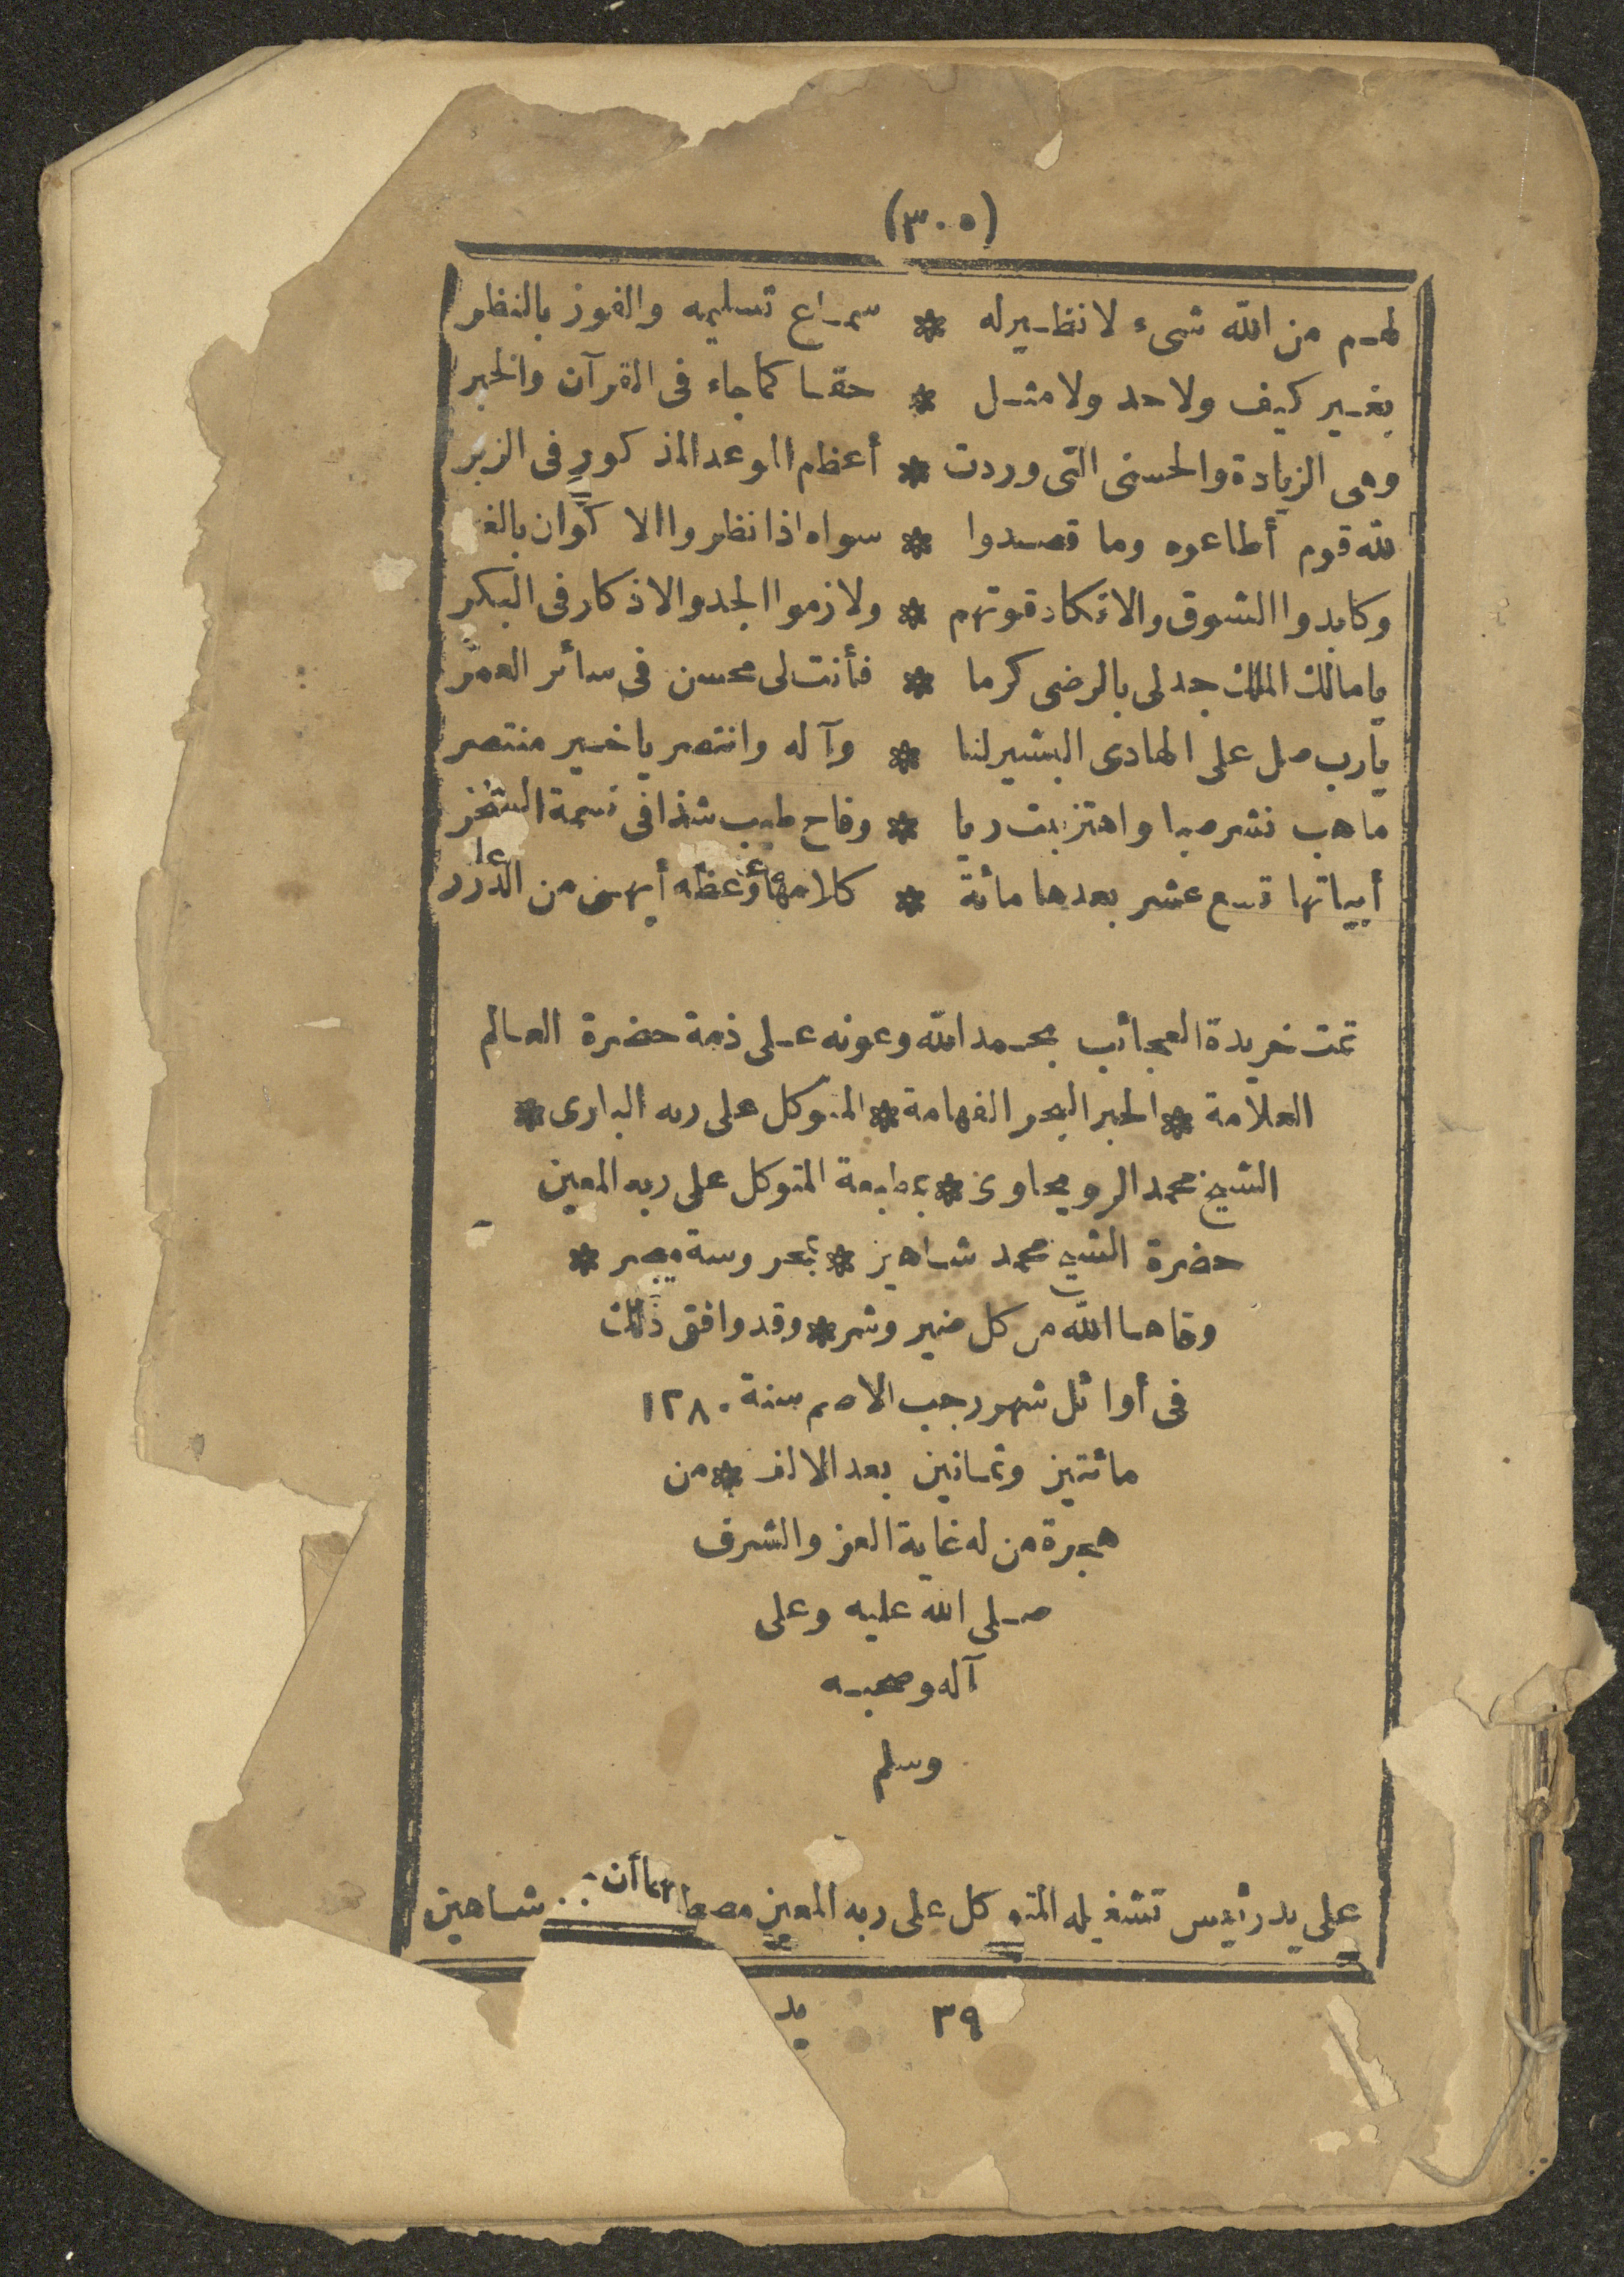 (٣٠٥)
لهم من الله شىء لا نظير له * سماع تسليمه والفوز بالنظر
بغير كيف ولا حد ولا مثل * حقا كما جاء فى القرآن والخبر
وهى الزيادة والحسنى التى وردت * أعظم الوعد المذكور فى الزبر
لله قوم أطاعوه وما قصدوا * سواه اذا نظروا الاكوان بالغ
وكابدوا الشوق والانكاد قوتهم * ولازموا الجد والاذكار فى البكر
يا مالك الملك جد لى بالرضى كرما * فأنت لى محسن فى سائر العمر
يارب صل على الهادى البشير لنا * وآله وانتصر يا خير منتصر
ما هب نشر صبا واهتز نبت ربا * وفاح طيب شذا فى نسمة السحر
أبياتها تسع عشر بعدها مائة * كلامها وعظه أبهى من الدرر
تمت خريدة العجائب بحمد الله وعونه على ذمة حضرة العالم
العلامة * الحبر البحر الفهامة * المتوكل على ربه البارى *
الشيخ محمد الرويحاوى * بمطبعة المتوكل على ربه المعين
حضرة الشيخ محمد شاهين * بمحروسة مصر *
وقاها الله من كل ضير وشر * وقد وافق ذلك
فى أوائل شهر رجب الاصم سنة ١٢٨٠
مائتين وثمانين بعد الالف * من
هجرة من له غاية العز والشرف
صلى الله عليه وعلى
آله وصحبه
وسلم
على يد رئيس تشغيله المتوكل على ربه المعين شاهين
٣٩ يد